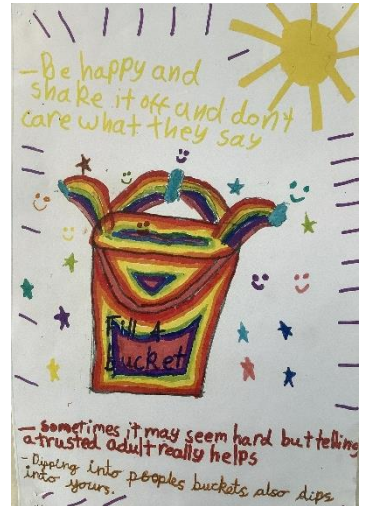 - Be happy and
shake it off and don't
care what they say
Fill A
bucket
- sometimes it may seem hard but telling
a trusted adult really helps
- Dipping into peoples buckets also dips
into yours.